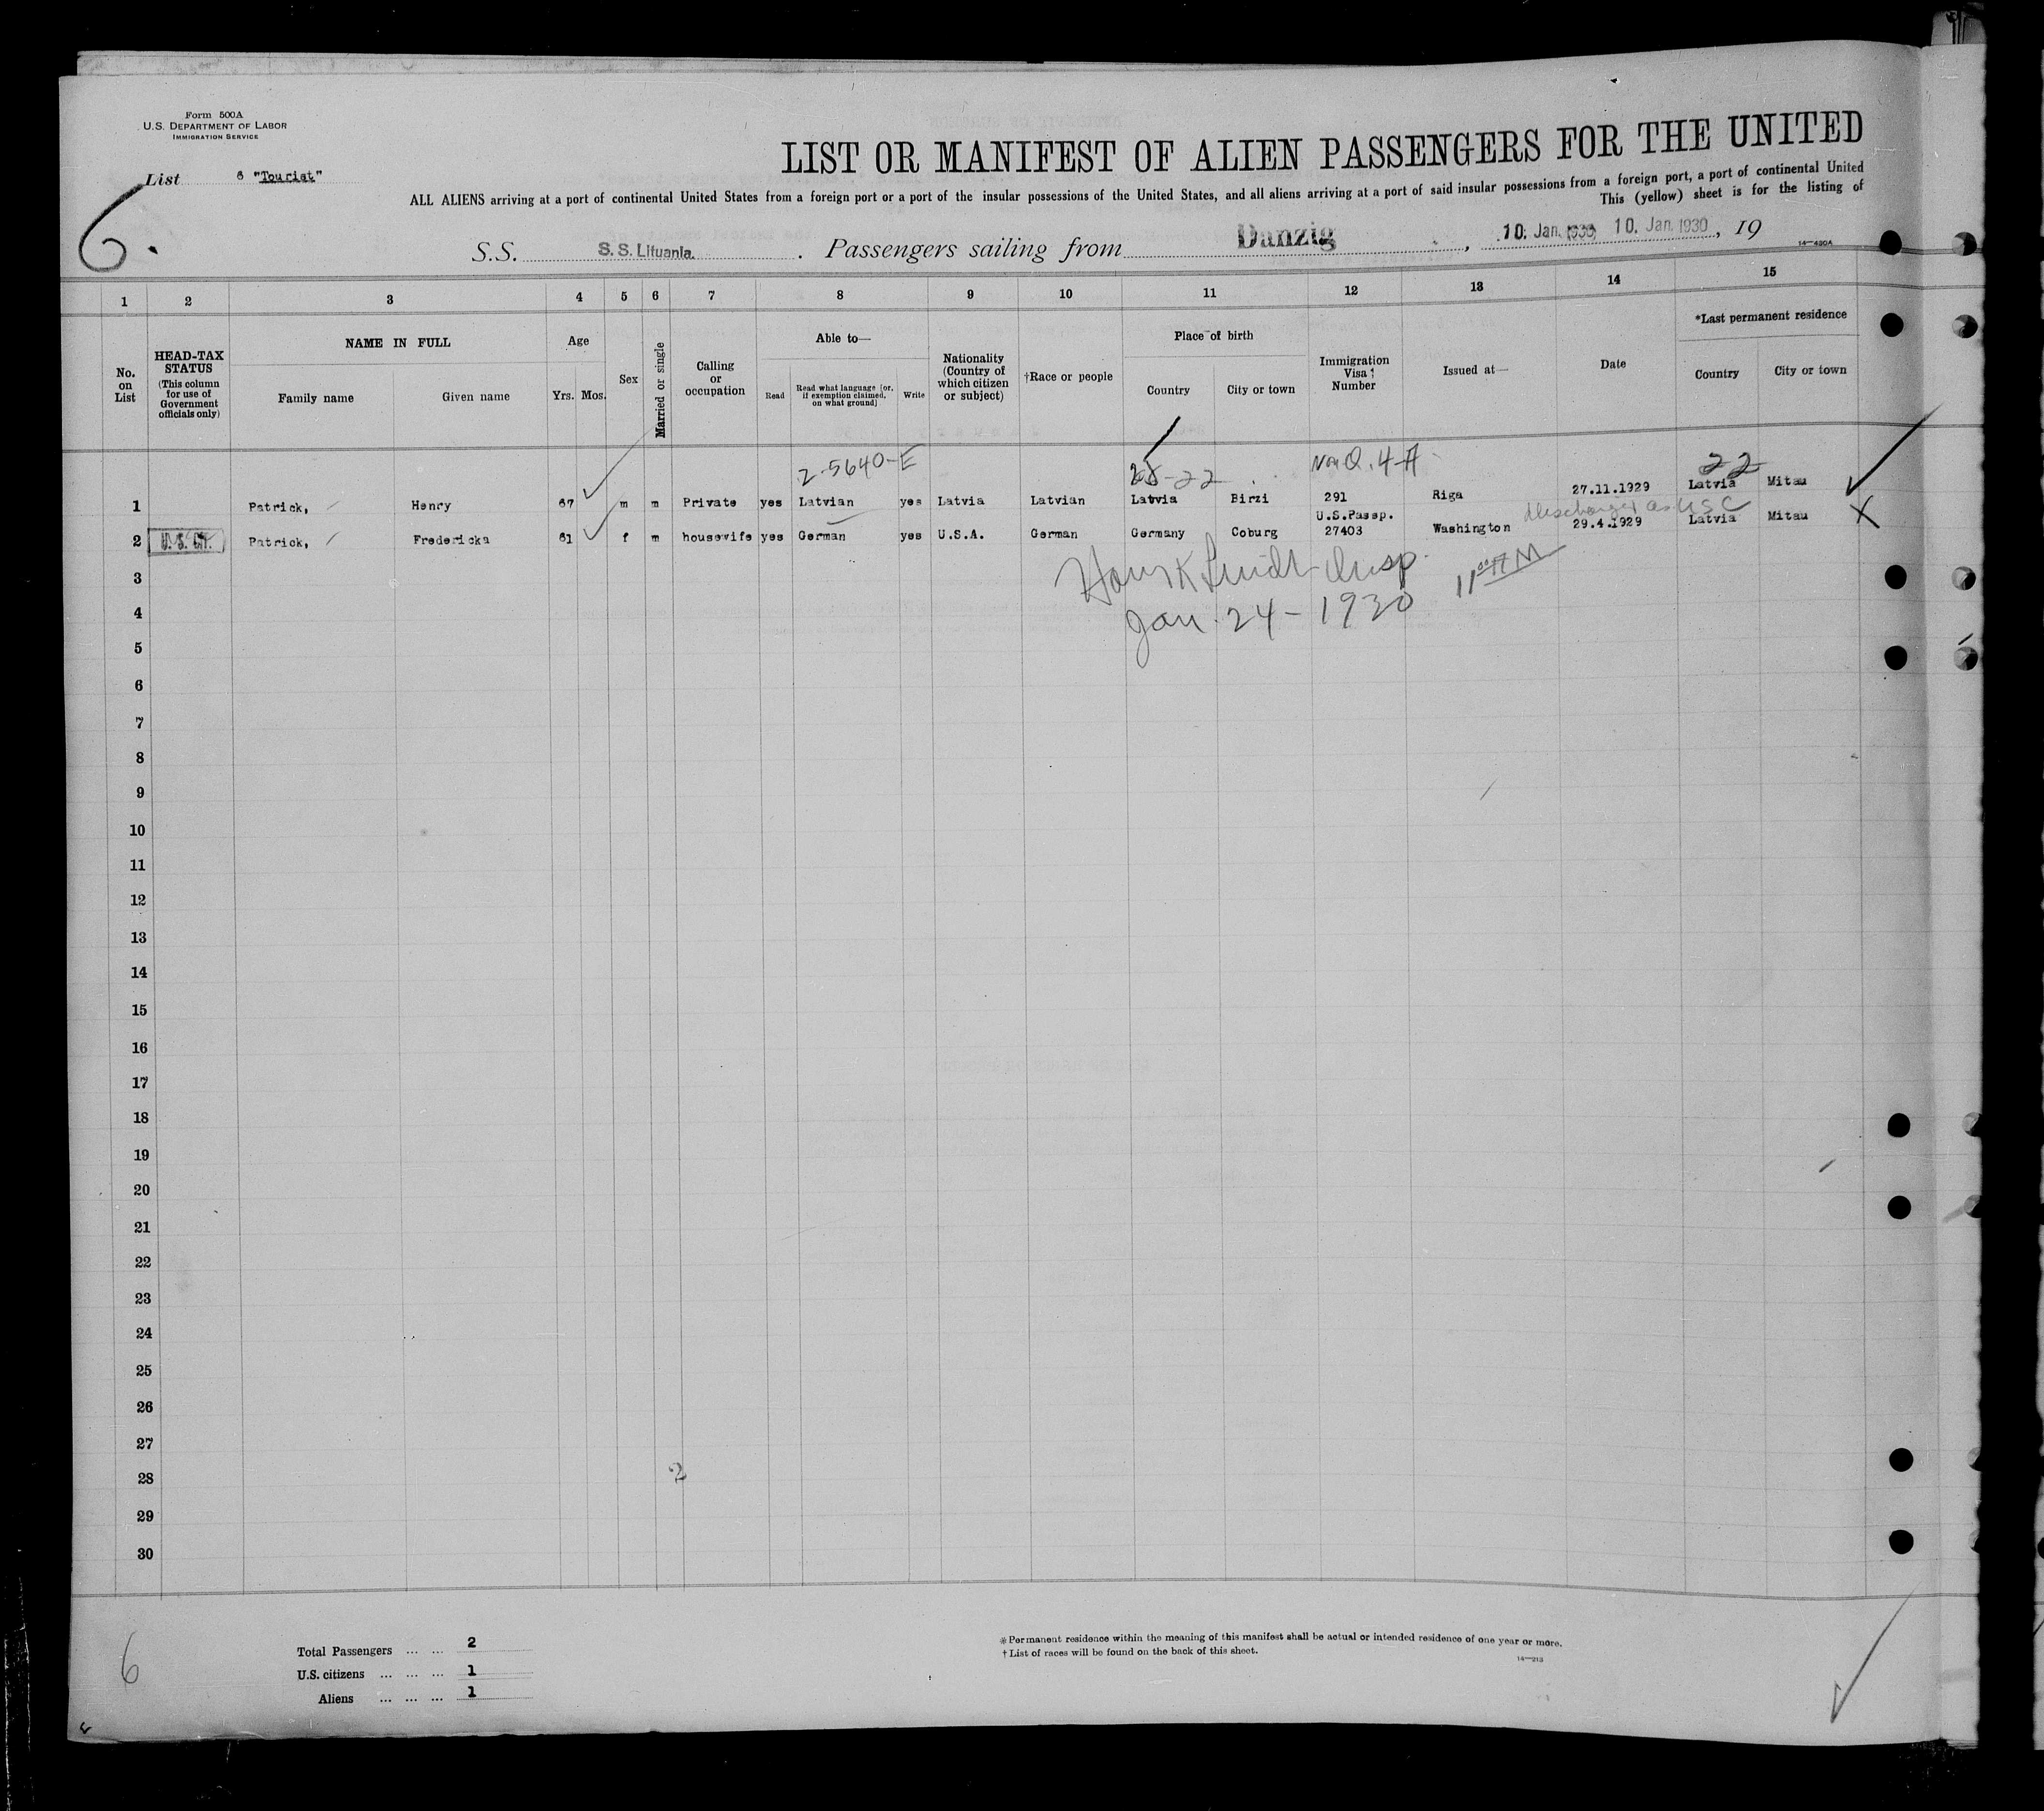 Form 500A
U.S. DEPARTMENT OF LABOR
IMMIGRATION SERVICE
List 6 "Tourist"
6.
LIST OR MANIFEST OF ALIEN PASSENGERS FOR THE UNITED
ALL ALIENS arriving at a port of continental United States from a foreign port or a port of the insular possessions of the United States, and all aliens arriving at a port of said insular possessions from a foreign port, a port of continental United
This (yellow) sheet is for the listing of
S.S. S.S. Lituania. . Passengers sailing from Danzig , 10. Jan. 1930, 10. Jan. 1930, 19
14—430A
1 2 3 4 5 6 7 8 9 10 11 12 13 14 15
No. on List
HEAD-TAX STATUS (This column for use of Government officials only)
NAME IN FULL
Family name Given name
Age
Yrs. Mos.
Sex
Married or single
Calling or occupation
Able to—
Read Read what language (or, if exemption claimed, on what ground) Write
Nationality (Country of which citizen or subject)
†Race or people
Place of birth
Country City or town
Immigration Visa Number
Issued at—
Date
*Last permanent residence
Country City or town
2-5640-E -22 Non Q. 4-A 22
1 Patrick, Henry 67 m m Private yes Latvian yes Latvia Latvian Latvia Birzi 291 Riga 27.11.1929 Latvia Mitau
discharged as USC
2 U.S. CIT. Patrick, Fredericka 61 f m housewife yes German yes U.S.A. German Germany Coburg U.S.Passp. 27403 Washington 29.4.1929 Latvia Mitau X
Insp. 11 00 AM
Jan. 24 - 1930
3
4
5
6
7
8
9
10
11
12
13
14
15
16
17
18
19
20
21
22
23
24
25
26
27
28 2
29
30
6
Total Passengers ... ... 2
U.S. citizens ... ... ... 1
Aliens ... ... ... 1
*Permanent residence within the meaning of this manifest shall be actual or intended residence of one year or more.
†List of races will be found on the back of this sheet.
14—213